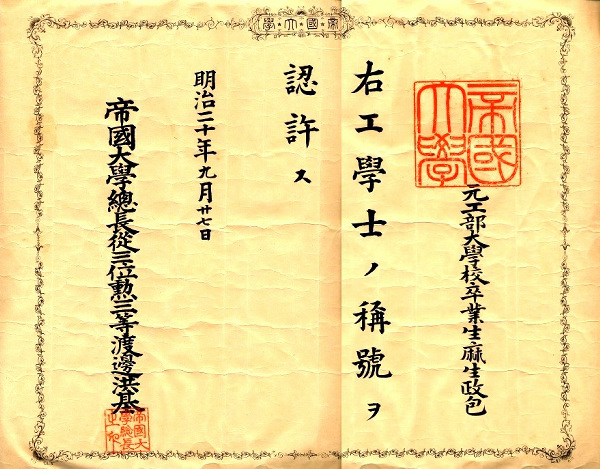 帝國大學
帝國大學
元工部大學校卒業生麻生政包
右工學士ノ稱號ヲ
認許ス
明治二十年九月廿七日
帝國大學總長從三位勲三等渡邊洪基
帝國大
學總長
之印